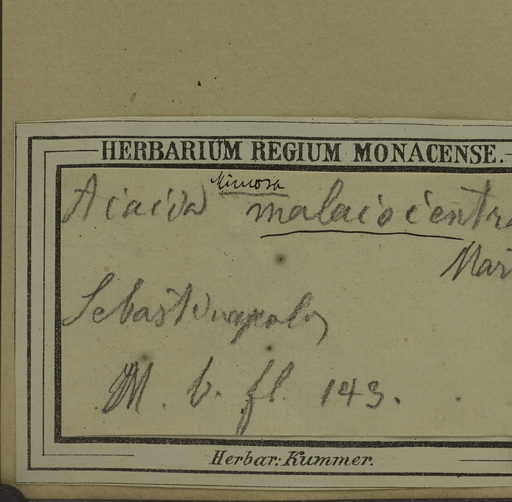 HERBARIUM REGIUM MONACENSE.
Mimosa
Acacia malacocentra
Mart
Sebastianopolis
M. b. fl. 143.
Herbar: Kummer.